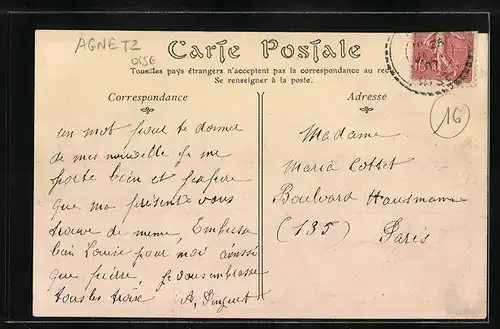 AGNETZ
OISE
Carte Postale
Tous les pays étrangers n'acceptent pas la correspondance au rec
Se renseigner à la poste.
Correspondance
un mot pour te donner
de mes nouvelle je me
porte bien et j'espère
que ma présente vous
trouve de meme, Embrasse
bien Louise pour moi aussi
que pierre, je vous embrasse
tous les trois
Adresse
16
Madame
Maria Cottet
Boulvard Hausmann
(135)
Paris